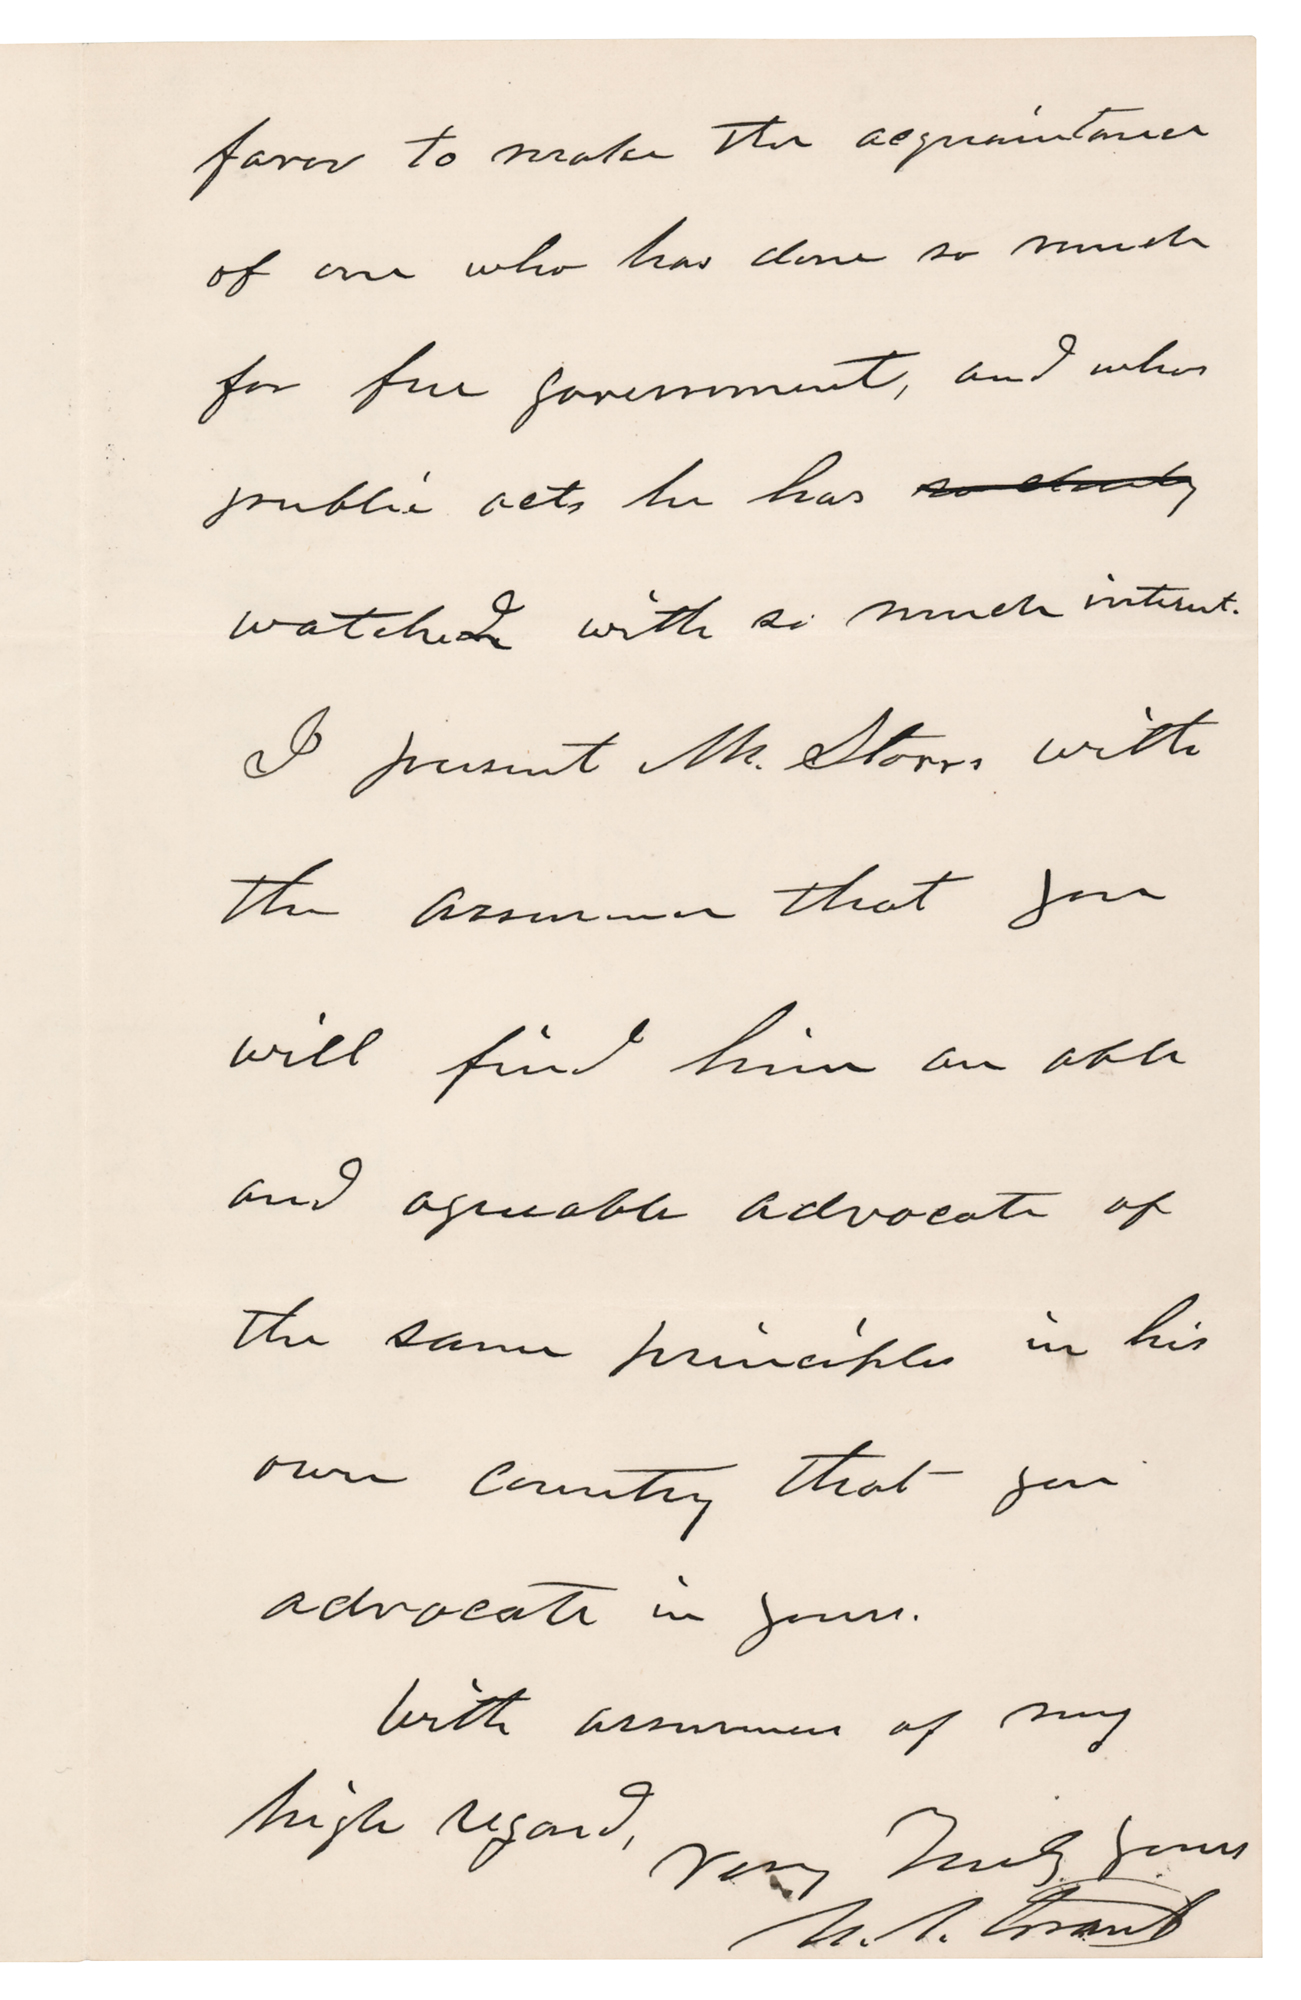 favor to make the acquaintance
of one who has done so much
for free government, and whos
public acts he has so closely
watched with so much interest.
I present Mr. Storrs with
the assurance that you
will find him an able
and agreeable advocate of
the same principles in his
own country that you
advocate in yours.
With assurances of my
high regard,
Very Truly yours
U. S. Grant